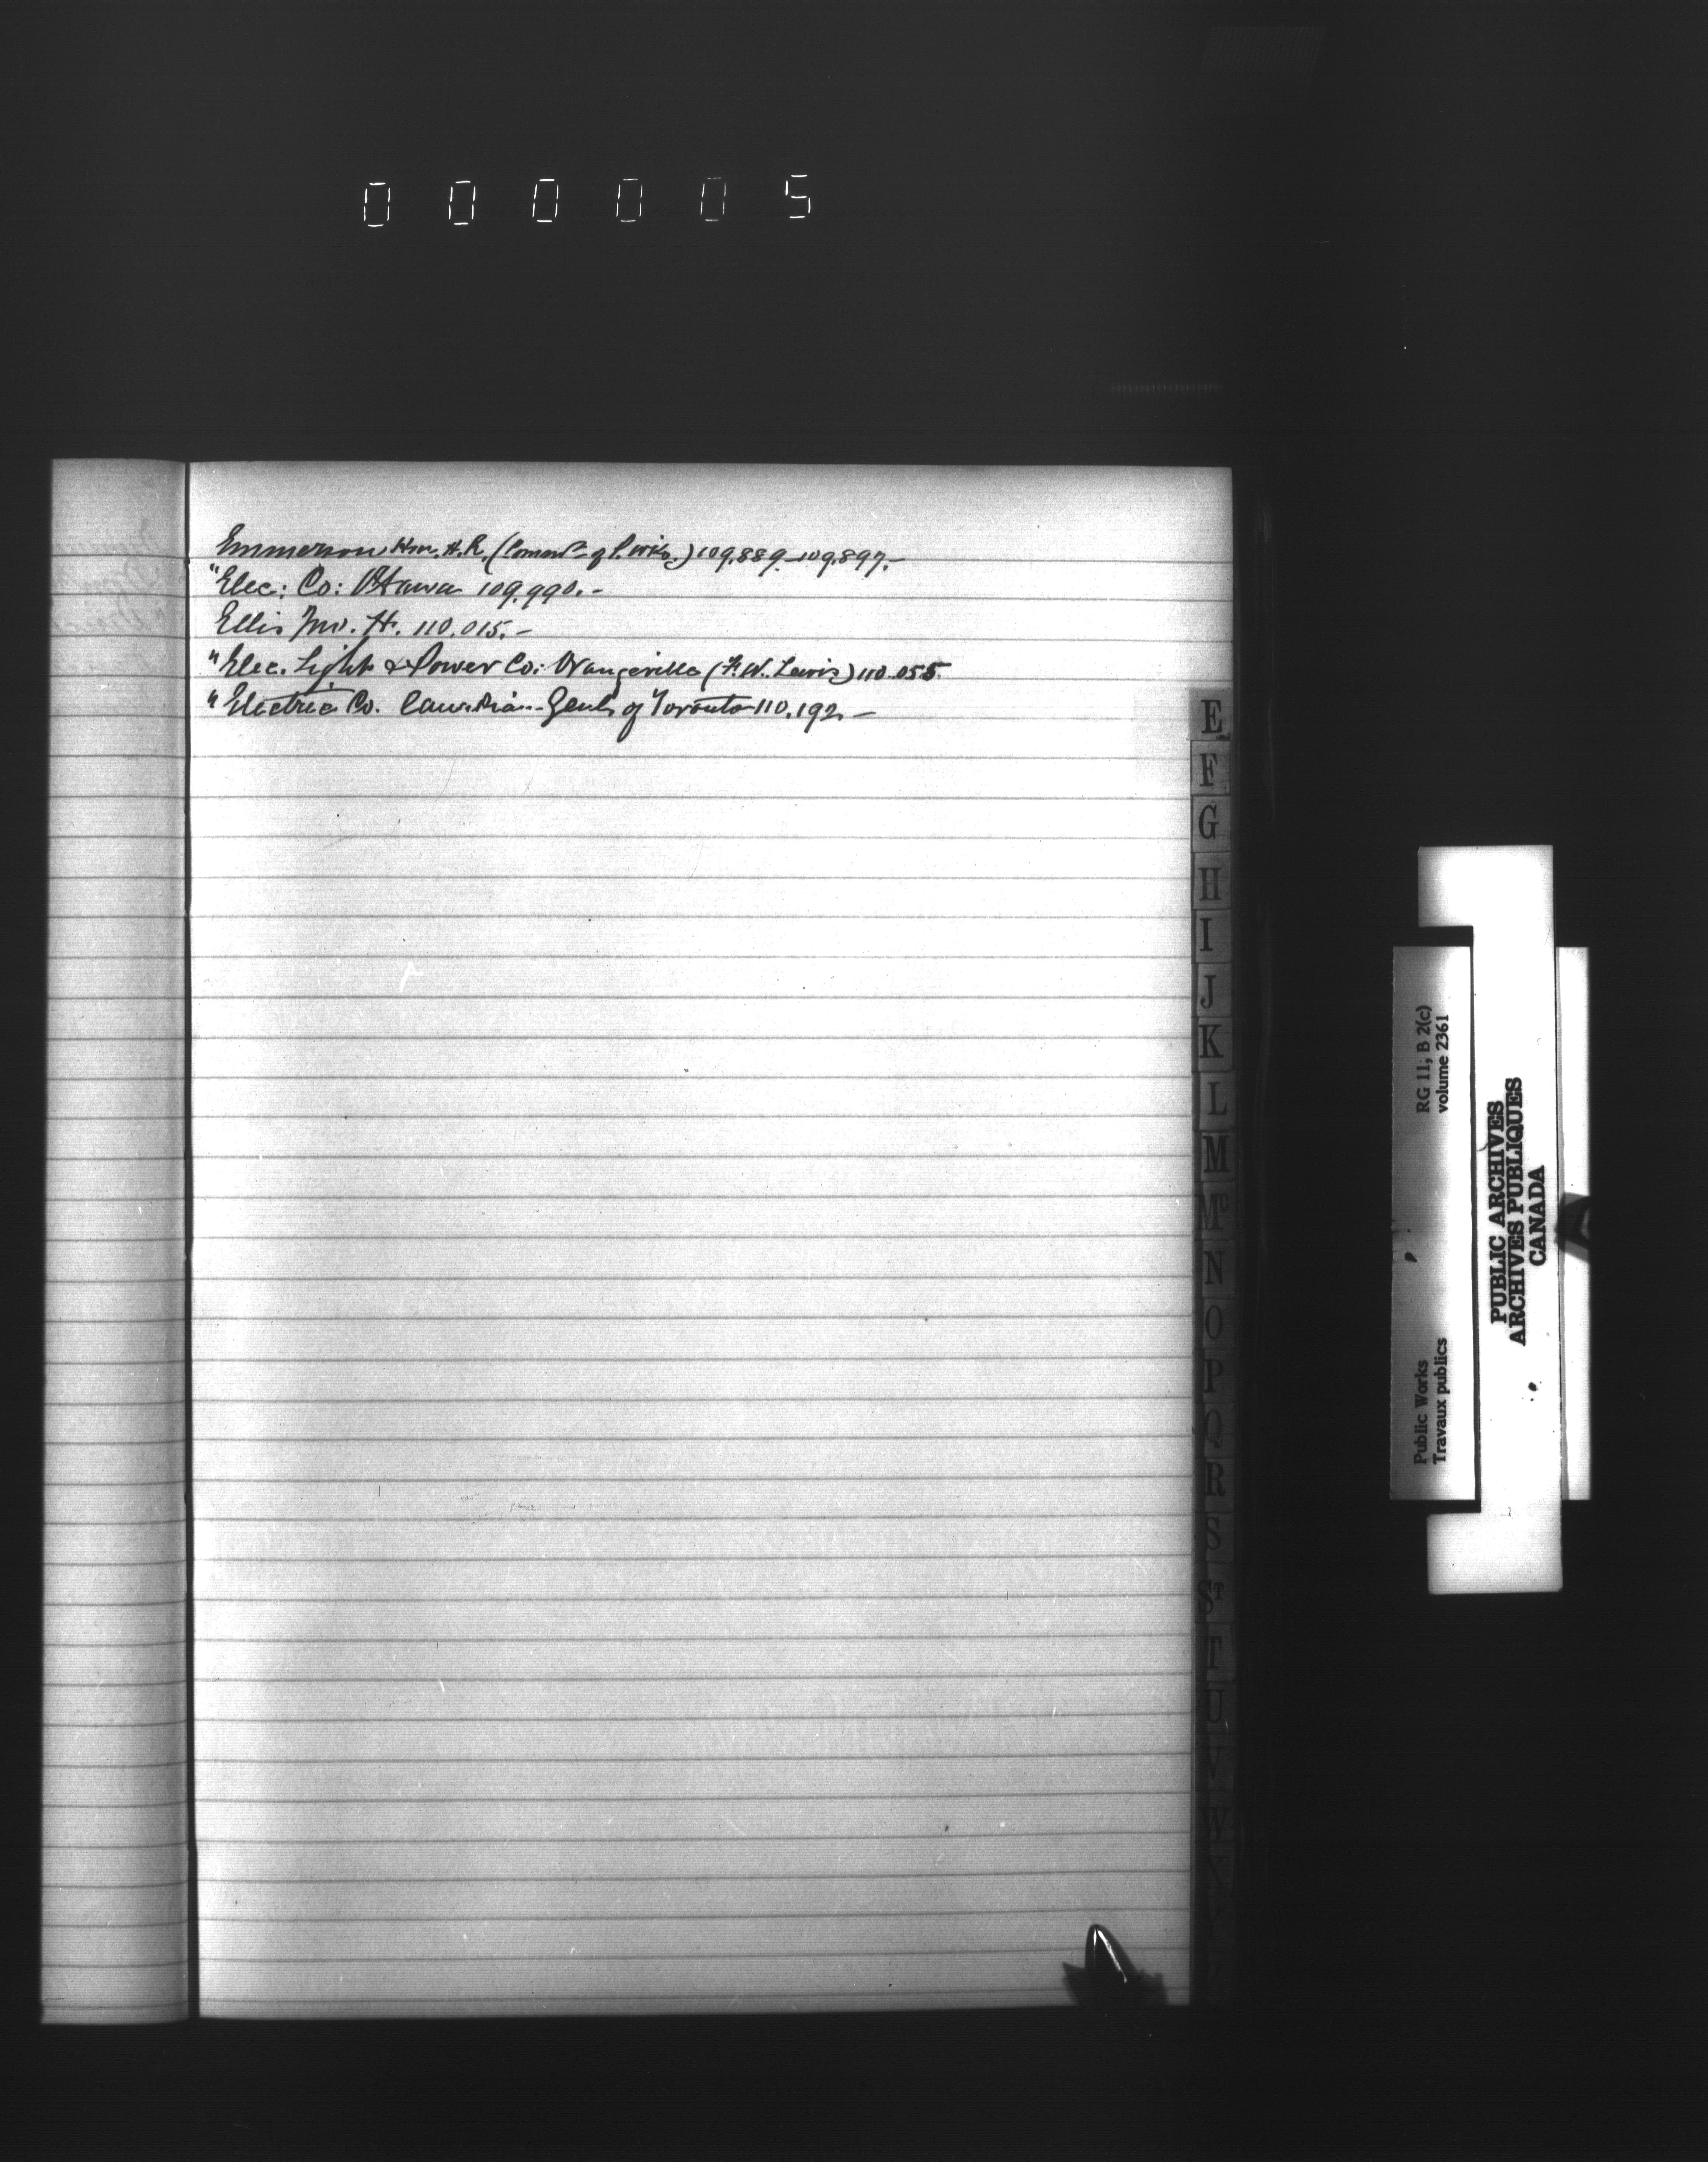 0 0 0 0 0 5
Emmerson Hon. H. R. (Commr of P. Wks.) 109.889. 109.897. –
"Elec: Co: Ottawa 109.990. –
Ellis Jno. H. 110.015. –
"Elec. Light & Power Co: Orangeville (F. W. Lewis) 110.055.
"Electric Co. Canadian Genl, of Toronto 110.192. –
E
F
G
H
I
J
K
L
M
Mc
N
O
P
Q
R
S
ST
T
U
V
W
RG 11, B 2(c)
volume 2361
Public Works
Travaux publics
PUBLIC ARCHIVES
ARCHIVES PUBLIQUES
CANADA